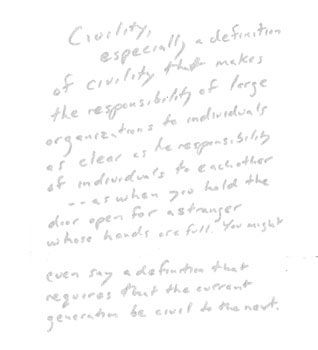 Civility,
especially a definition
of civility that makes
the responsibility of large
organizations to individuals
as clear as he responsibility
of individuals to eachother
-- as when you hold the
door open for a stranger
whose hands are full. You might
even say a definition that
requires that the current
generation be civil to the next.